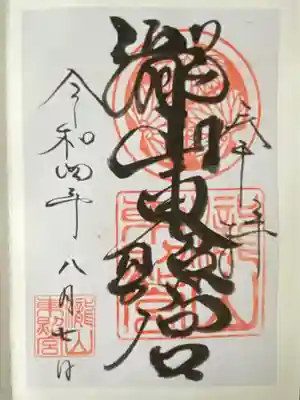 瀧山東照宮
令和四年 八月七日
瀧山
東照宮